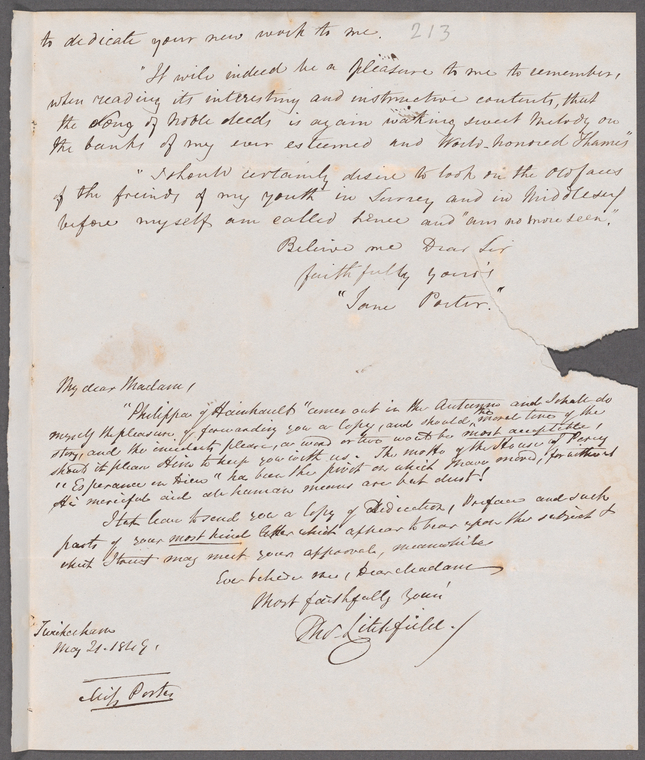 to dedicate your new work to me. 213
"It will indeed be a pleasure to me to remember,
when reading its interesting and instructive contents, that
the Song of Noble deeds is again waking sweet Melody on
the banks of my ever esteemed and World-honored Thames"
"I should certainly desire to look on the old faces
of the freinds of my youth in Surrey and in Middlesex
before myself am called hence and "am no more seen."
Believe me Dear Sir
faithfully yours
"Jane Porter."
My dear Madam,
"Philippa of Hainhault" comes out in the Autumn and I shall do
myself the pleasure of forwarding you a copy, and should the moral tone of the
story, and the incidents please, a word or two won't be most acceptible,
should it please Him to keep you with us. The motto of the House of Percy
"Esperance en Dieu" has been the pivot on which I have moved, for without
His merciful aid all human means are but dust!
I take leave to send you a copy of Dedication, Preface and such
parts of your most kind letter which appear to bear upon the subject &
which I trust may meet your approval, meanwhile
Ever believe me, Dear Madam
Most faithfully Yours
Thos Litchfield.
Twickenham
May 21. 1849.
Miss Porter